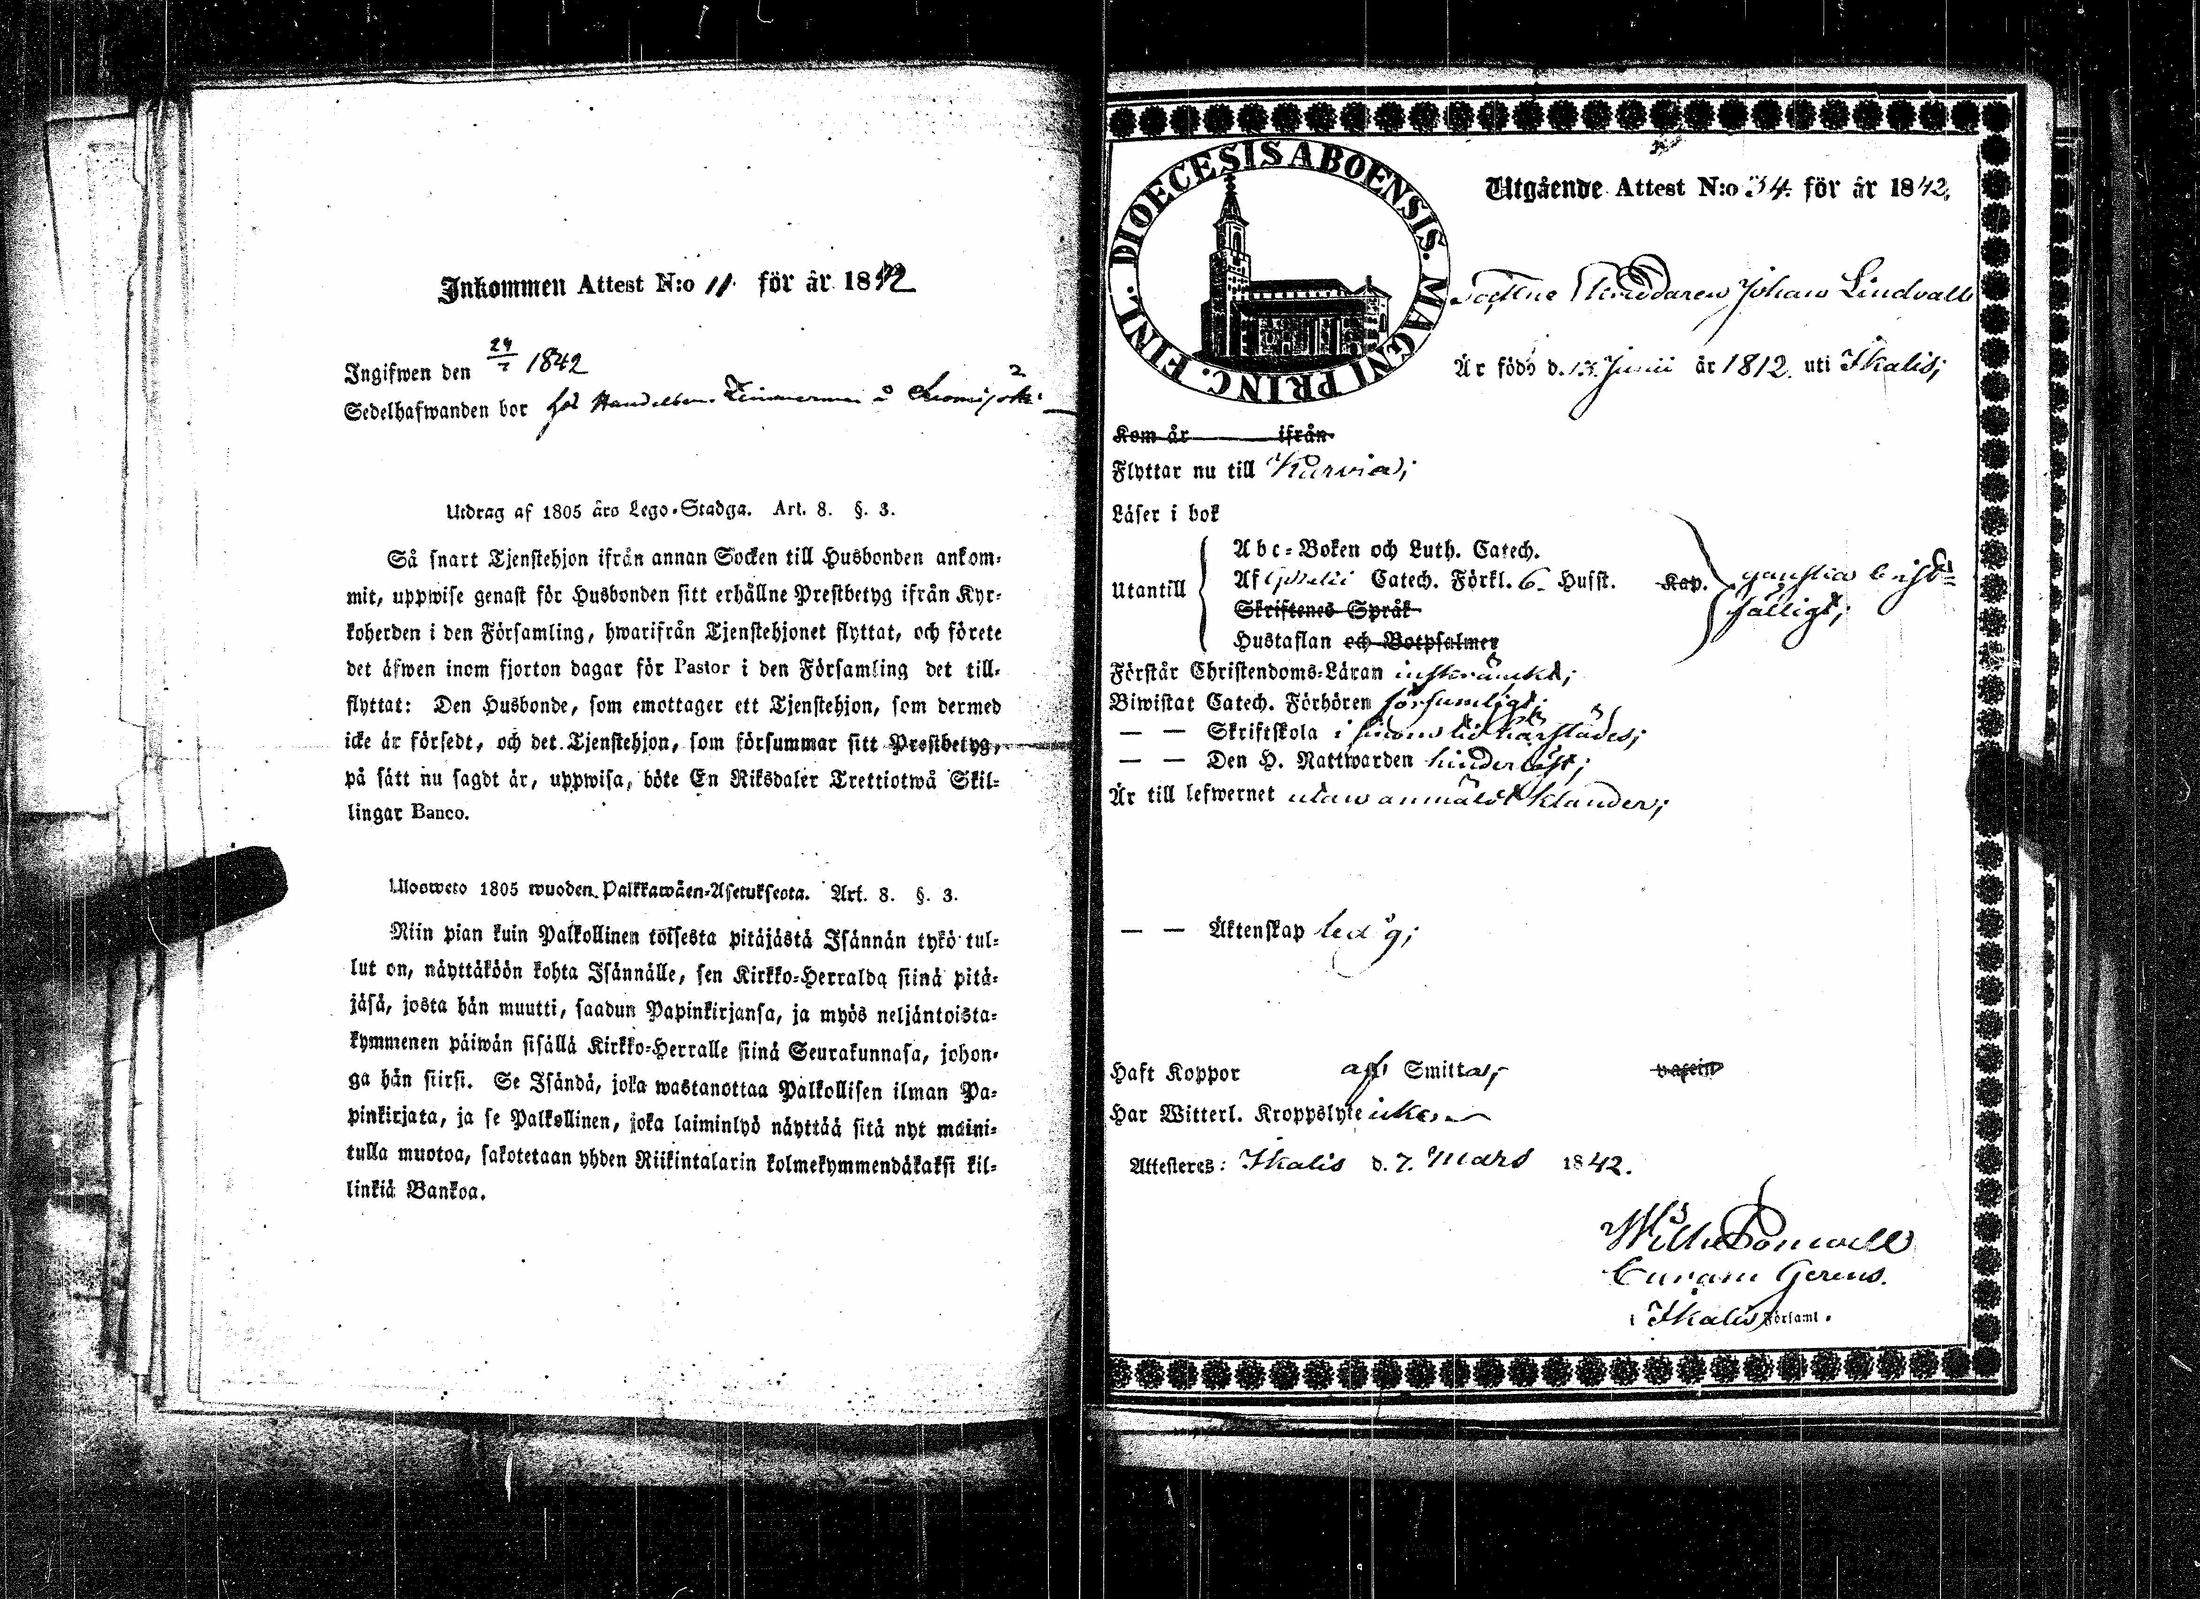 Inkommen Attest N:o 11. för år 1842
Ingifwen den 24/7 1842
Sedelhafwanden bor
Utdrag af 1805 års Lego-Stadga. Art. 8. §. 3.
Så snart Tjenstehjon ifrån annan Socken till Husbonden ankom-
mit, uppwise genast för Husbonden sitt erhållne Prestbetyg ifrån Kyr-
koherden i den Församling, hwarifrån Tjenstehjonet flyttat, och förete
det äfwen inom fjorton dagar för Pastor i den Församling det till-
flyttat: Den Husbonde, som emottager ett Tjenstehjon, som dermed
icke är försedt, och det Tjenstehjon, som försummar sitt Prestbetyg,
på sätt nu sagdt är, uppwisa, böte En Riksdaler Trettiotwå Skil-
lingar Banco.
Uloosweto 1805 wuoden Palkkawäen-Asetuksesta. Art. 8. §. 3.
Niin pian kuin Palkollinen toisesta pitäjästä Isännän tykö tul-
lut on, näyttäköön kohta Isännälle, sen Kirkko-Herralda siinä pitä-
jäsä, josta hän muutti, saadun Papinkirjansa, ja myös neljäntoista-
kymmenen päiwän sisällä Kirkko-Herralle siinä Seurakunnasa, johon-
ga hän siirsi. Se Isändä, joka wastanottaa Palkollisen ilman Pa-
pinkirjata, ja se Palkollinen, joka laiminlyö näyttää sitä nyt maini-
tulla muotoa, sakotetaan yhden Riikintalarin kolmekymmendäkaksi kil-
linkiä Bankoa.
DIOECESIS ABOENSIS. MAGNI PRINC. FINL.
Utgående Attest N:o 34. för år 1842,
Johan Lindvall
Är född d. 13. Junii år 1812. uti Ikalis;
Kom år ifrån
Flyttar nu till Kurvia;
Läser i bok
Utantill
Abc-Boken och Luth. Catech.
Af Catech. Förkl. 6. Husst. Kap.
Skriftenes Språk
Hustaflan och Botpsalmer
ganska bristfälligt;
Förstår Christendoms-Läran inskränkt;
Biwistat Catech. Förhören försumligt;
— — Skriftskola i
— — Den H. Nattwarden
Är till lefwernet utan anmäldt klander;
— — Äktenskap ledig;
Haft Koppor af Smitta; vaccin
Har Witterl. Kroppslyte icke.
Attesteres: Ikalis d. 7. Mars 1842.
Curam Gerens.
i Ikalis Församl.